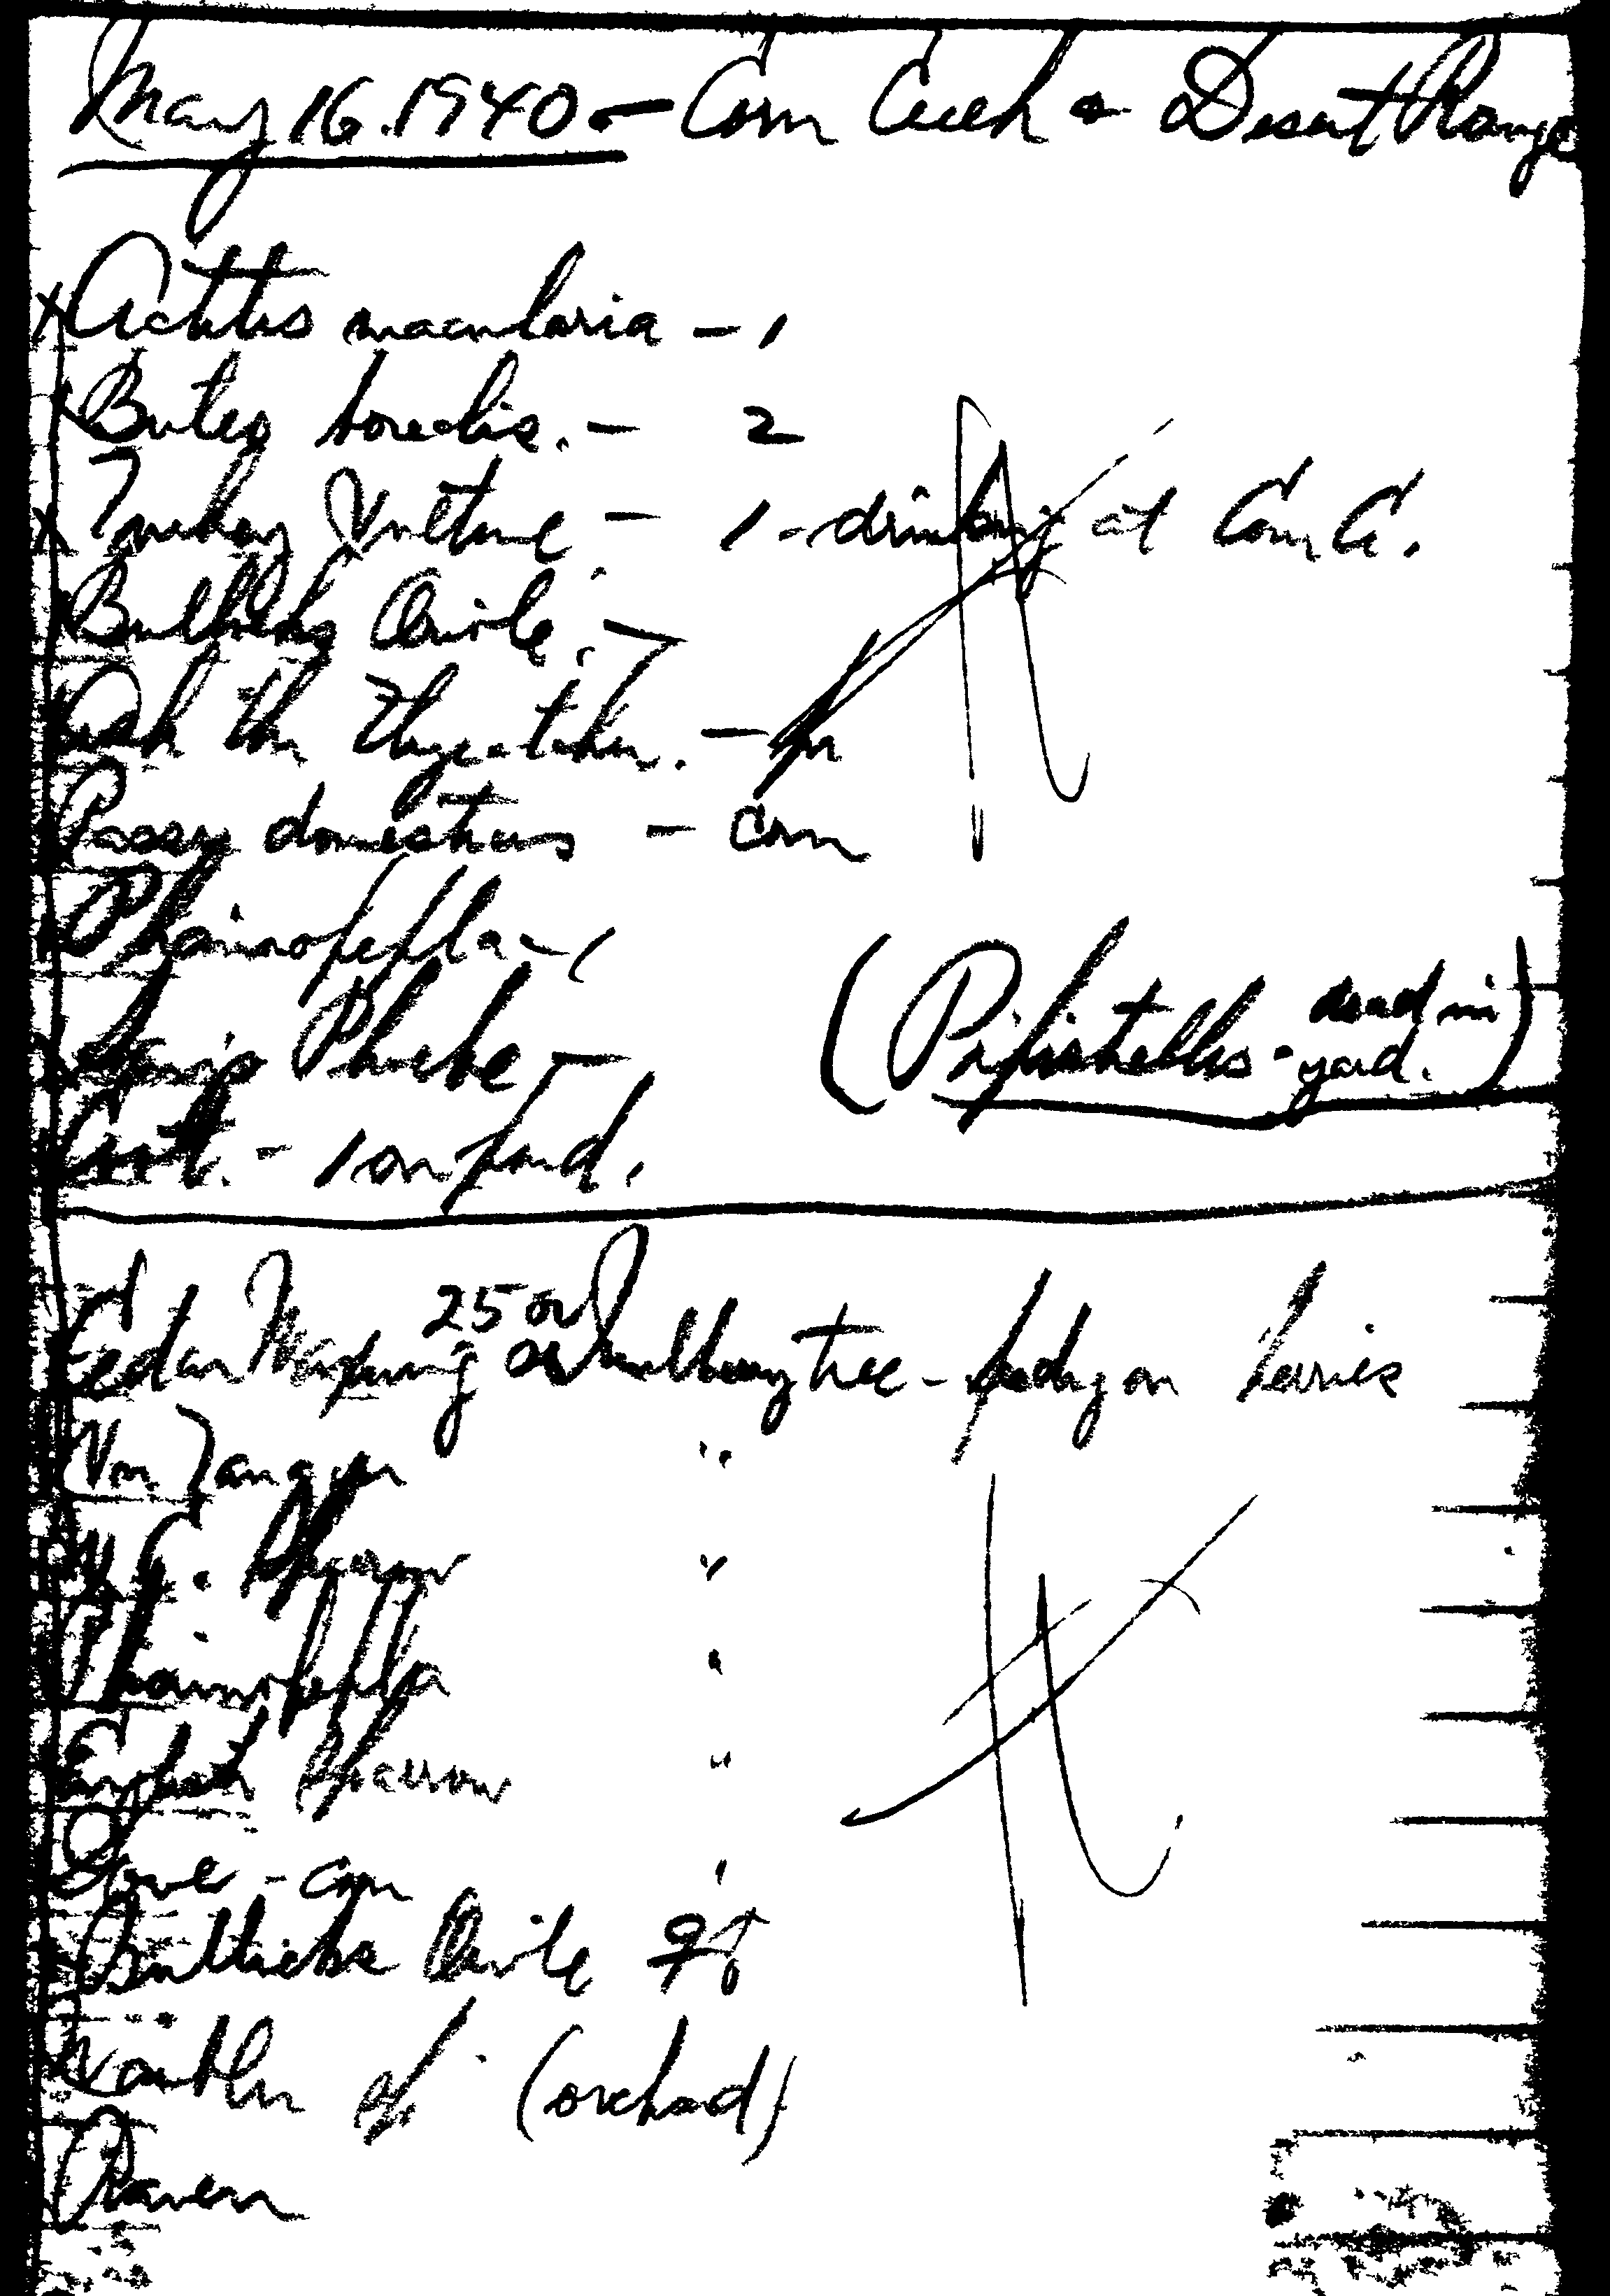 May 16. 1940 - Corn Creek & Desert Range
x Actitis macularia - 1
Buteo borealis. - 2
x Turkey Vulture - 1 - drinking at Corn Cr.
Bullocks Oriole. -
Ash Thr Flycatcher. - pr
Passer domesticus - com
Phainopepla - 1
Says Phoebe -
(Pipistrellus - dead in yard.)
Coot. - 1 on pond.
Cedar Waxwing 25 or on Mulberry tree - feeding on berries
Wn Tanager "
W. C. Sparrow "
Phainopepla "
English Sparrow "
Dove - com "
Bullocks Oriole ♀ ♂
Warbler sp. (orchard)
Raven